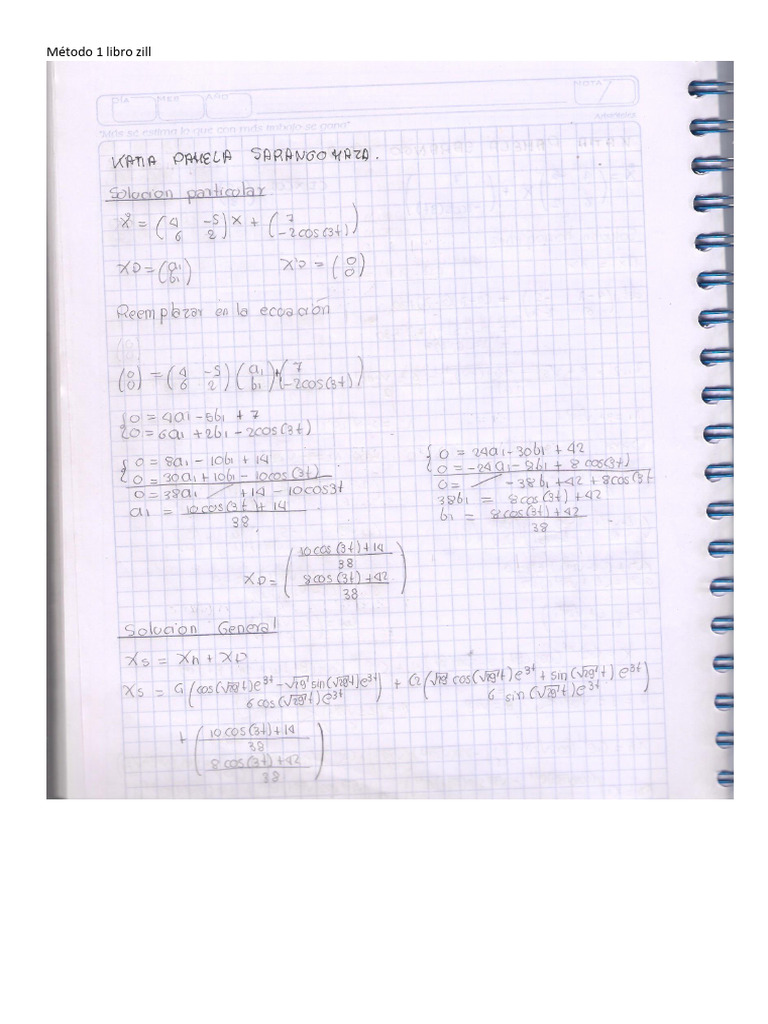 Método 1 libro zill
DÍA MES AÑO NOTA
"Más se estima lo que con más trabajo se gana"
KATIA PAMELA SARANGO MAZA.
Solucion particular.
X° = (4 -5 / 6 2) X + (7 / -2cos(3t))
XP = (a1 / b1) X'P = (0 / 0)
Reemplazar en la ecuación
(0 / 0) = (4 -5 / 6 2) (a1 / b1) + (7 / -2cos(3t))
{0 = 4a1 - 5b1 + 7
{0 = 6a1 + 2b1 - 2cos(3t)
{0 = 8a1 - 10b1 + 14
0 = 30a1 + 10b1 - 10cos(3t)
0 = 38a1 + 14 - 10cos3t
a1 = 10cos(3t) + 14 / 38
{0 = 24a1 - 30b1 + 42
0 = -24a1 - 8b1 + 8cos(3t)
0 = - 38b1 + 42 + 8cos(3t
38b1 = 8cos(3t) + 42
b1 = 8cos(3t) + 42 / 38
XP = (10cos(3t) + 14 / 38
8cos(3t) + 42 / 38)
Solucion General
Xs = Xh + XP
Xs = C1 (cos(√29 t)e^3t - √29 sin(√29 t)e^3t / 6cos(√29 t)e^3t) + C2 (√29 cos(√29 t)e^3t + sin(√29 t)e^3t / 6 sin(√29 t)e^3t)
+ (10cos(3t) + 14 / 38
8cos(3t) + 42 / 38)